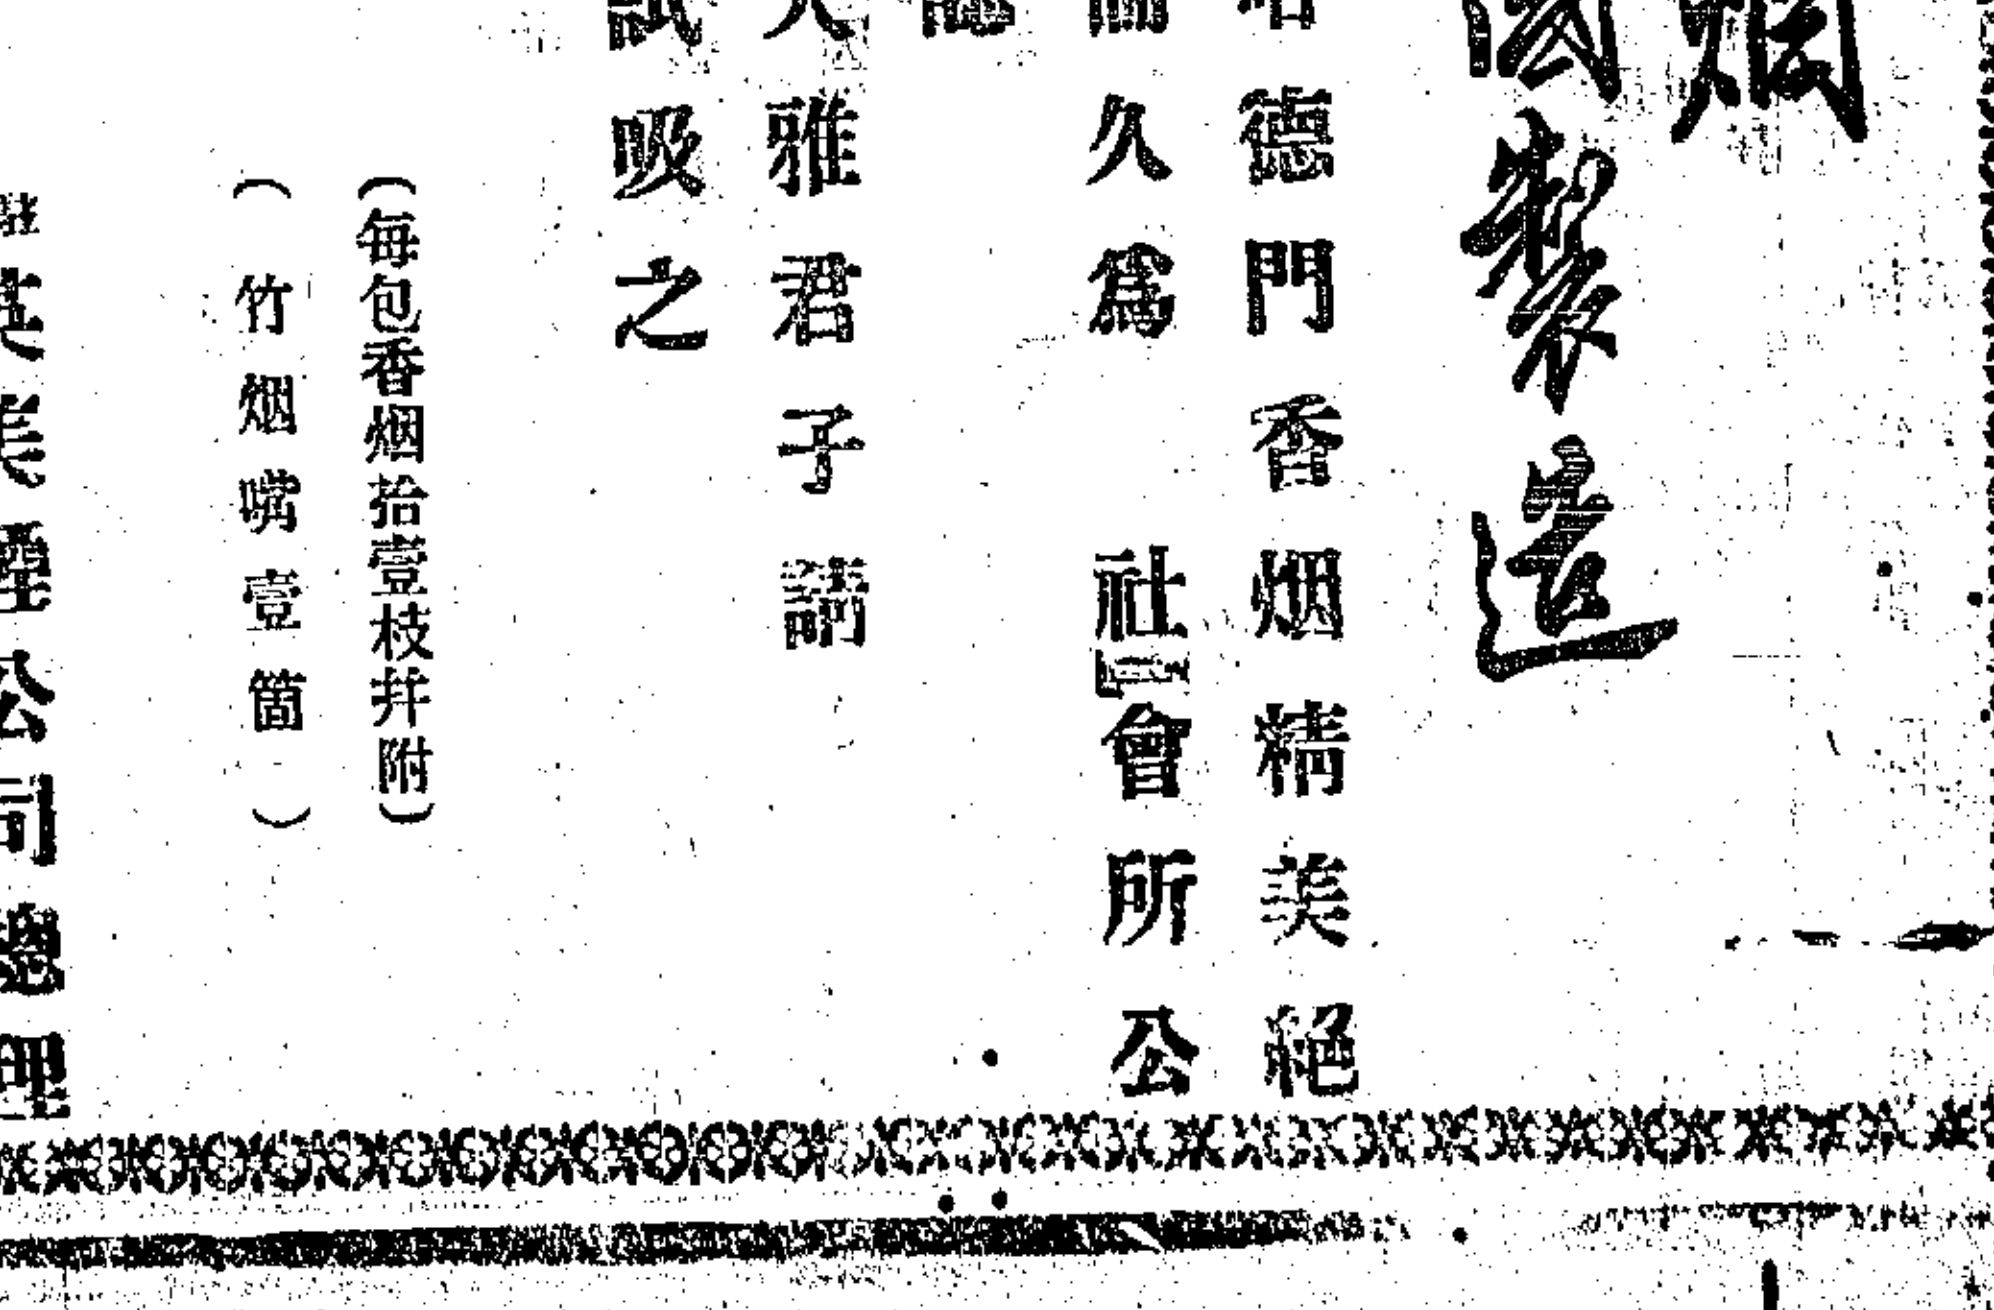 烟
製造
德門香烟精美絕
久爲 社會所公
雅君子請
試吸之
(每包香烟拾壹枝幷附)
(竹烟嘴壹箇)
駐英美煙公司總理